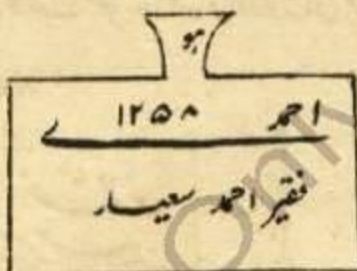 ہو
احمد ۱۲۵۸ ے
فقیر احمد سعید